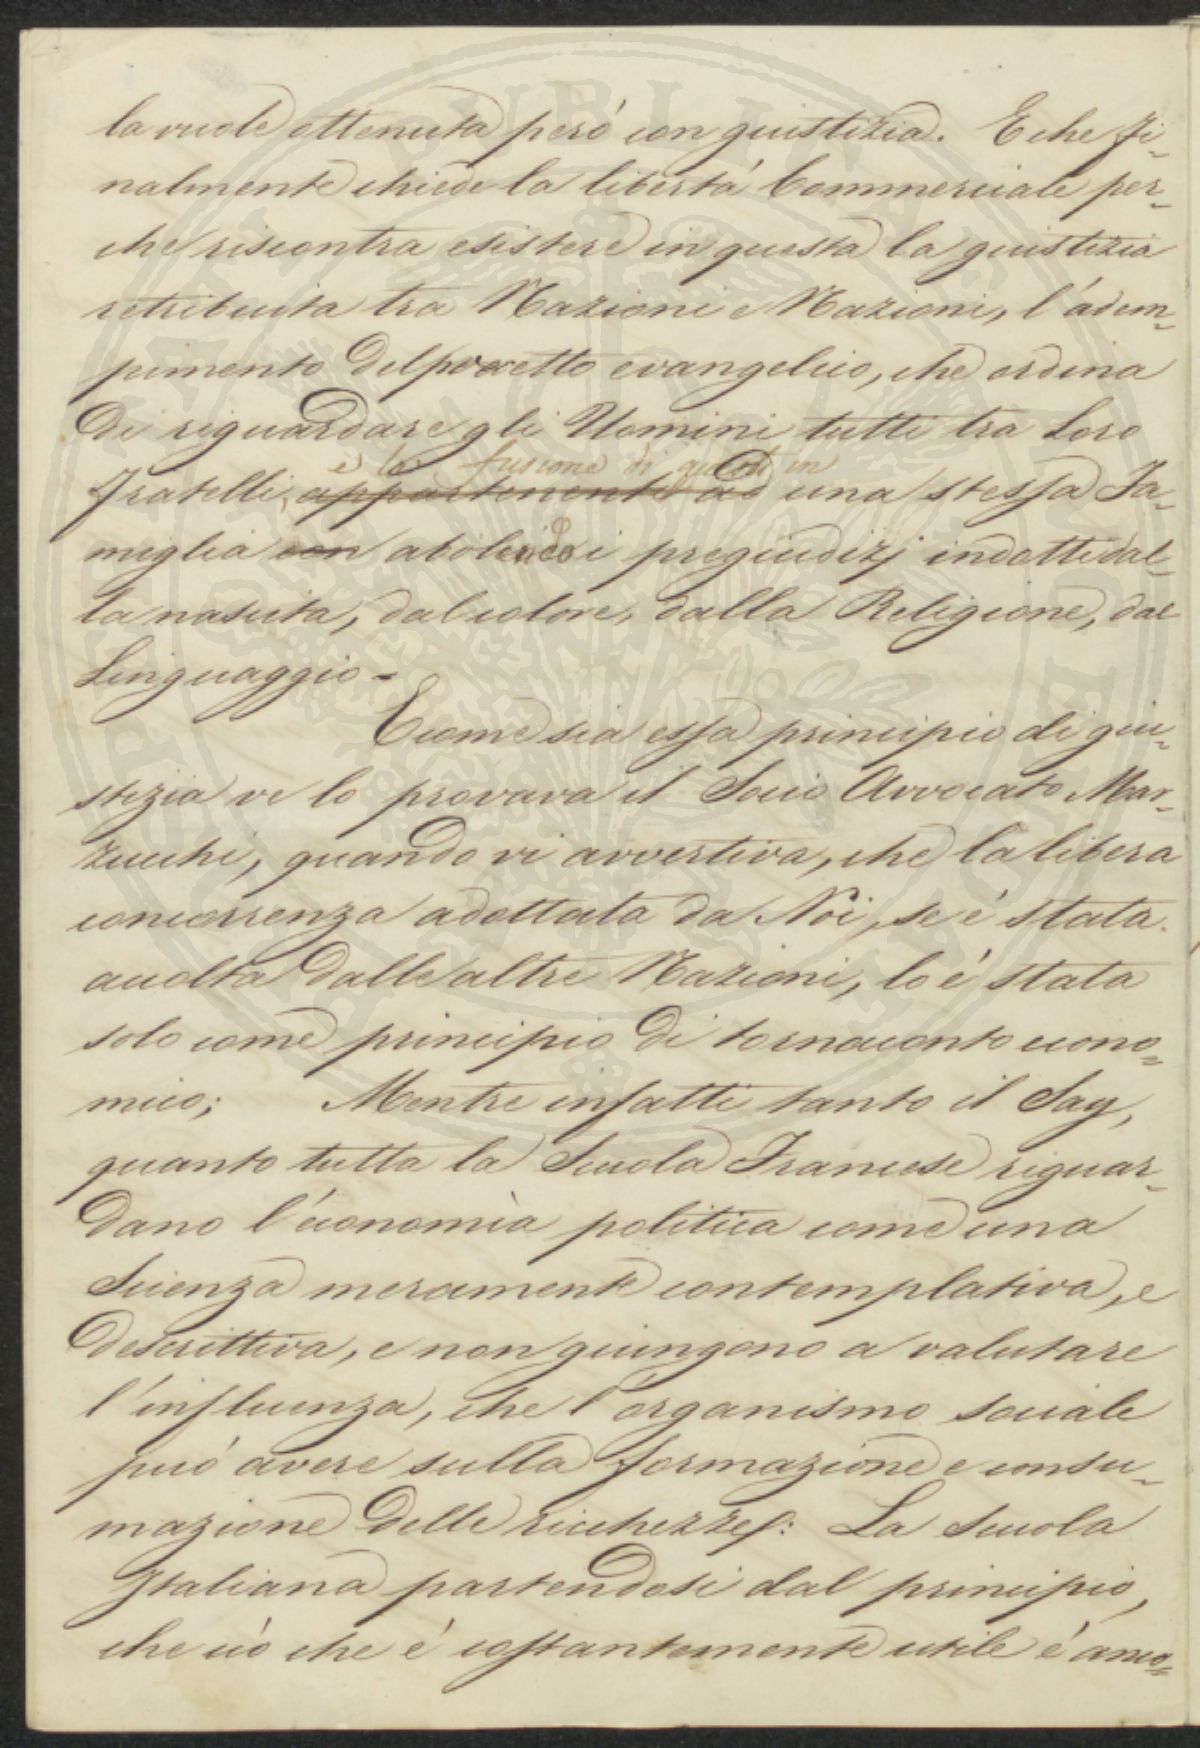 la vuole ottenuta peró con giustizia. E che fi-
nalmente chiede la libertá Commerciale per-
che riscontra esistere in questa la giustizia
retribuita tra Nazioni e Nazioni, l'adem-
pimento del precetto evangelico, che ordina
di riguardare gli Uomini tutti tra Loro
e la fusione di questi in
fratelli, appartenenti ad una stessa Fa-
miglia con aboliti i pregiudizj indotti dal-
la nascita, dal colore, dalla Religione, dal
Linguaggio -
E come sia essa principio di giu-
stizia ve lo provava il Socio Avvocato Mar-
zucchi, quando vi avvertiva, che la libera
concorrenza adottata da Noi, se é stata
accolta dalle altre Nazioni, lo é stata
solo come principio di tornaconto econo-
mico; Mentre infatti tanto il Say,
quanto tutta la Scuola Francese riguar-
dano l'economìa politica come una
Scienza meramente contemplativa, e
descrittiva, e non giungono a valutare
l'influenza, che l'organismo sociale
puó avere sulla formazione e consu-
mazione delle ricchezze: La Scuola
Italiana partendosi dal principio,
che ció che é costantemente utile é anco-